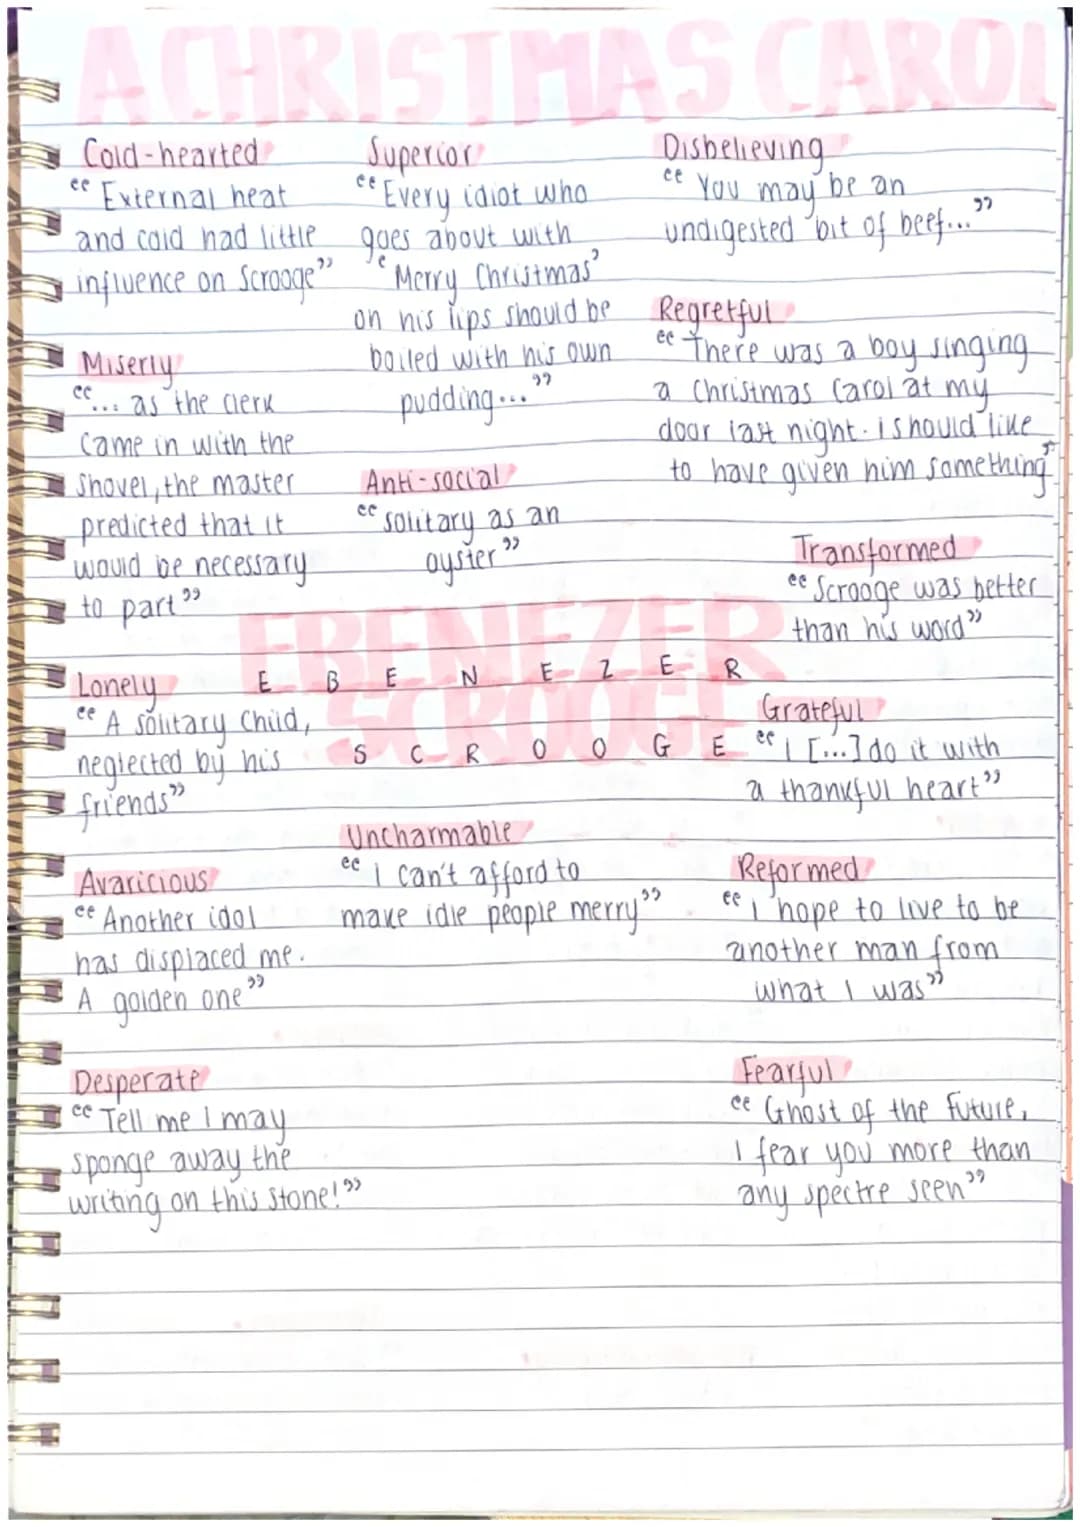 A CHRISTMAS CAROL
Cold-hearted
“External heat
and cold had little
influence on Scrooge”
Miserly
“... as the clerk
came in with the
shovel, the master
predicted that it
would be necessary
to part”
Lonely
“A solitary child,
neglected by his
friends”
Avaricious
“Another idol
has displaced me.
A golden one”
Desperate
“Tell me I may
sponge away the
writing on this stone!”
Superior
“Every idiot who
goes about with
‘Merry Christmas’
on his lips should be
boiled with his own
pudding...”
Anti-social
“solitary as an
oyster”
EBENEZER
SCROOGE
E B E N E Z E R
S C R O O G E
Uncharmable
“I can't afford to
make idle people merry”
Disbelieving
“You may be an
undigested bit of beef...”
Regretful
“There was a boy singing
a Christmas Carol at my
door last night. i should like
to have given him something”
Transformed
“Scrooge was better
than his word”
Grateful
“I [...] do it with
a thankful heart”
Reformed
“i hope to live to be
another man from
what I was”
Fearful
“Ghost of the Future,
I fear you more than
any spectre seen”